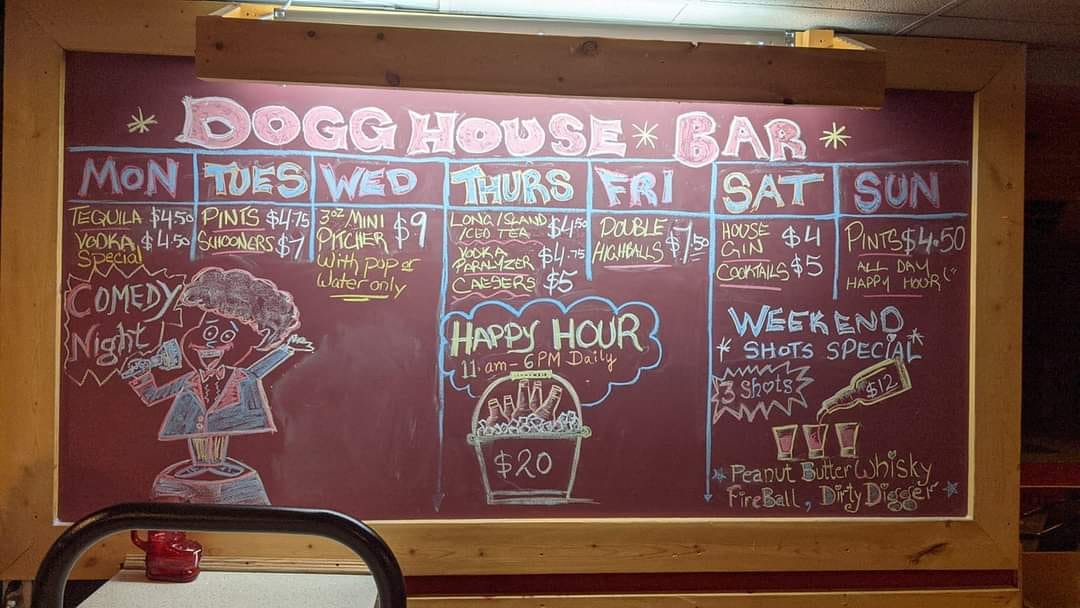 DOGG HOUSE * BAR
MON
TEQUILA $4.50
VODKA $4.50
Special
COMEDY
Night
TUES
PINTS $4.75
SCHOONERS $7
WED
3oz MINI
PITCHER $9
With pop or
Water only
THURS
LONG ISLAND
ICED TEA $4.50
VODKA
PARALYZER $4.75
CAESERS $5
HAPPY HOUR
11 am - 6 PM Daily
$20
FRI
DOUBLE
HIGHBALLS $7.50
SAT
HOUSE
GIN $4
COCKTAILS $5
SUN
PINTS $4.50
ALL DAY
HAPPY HOUR
WEEKEND
SHOTS SPECIAL
3 Shots
$12
Peanut Butter Whisky
FireBall, Dirty Digger